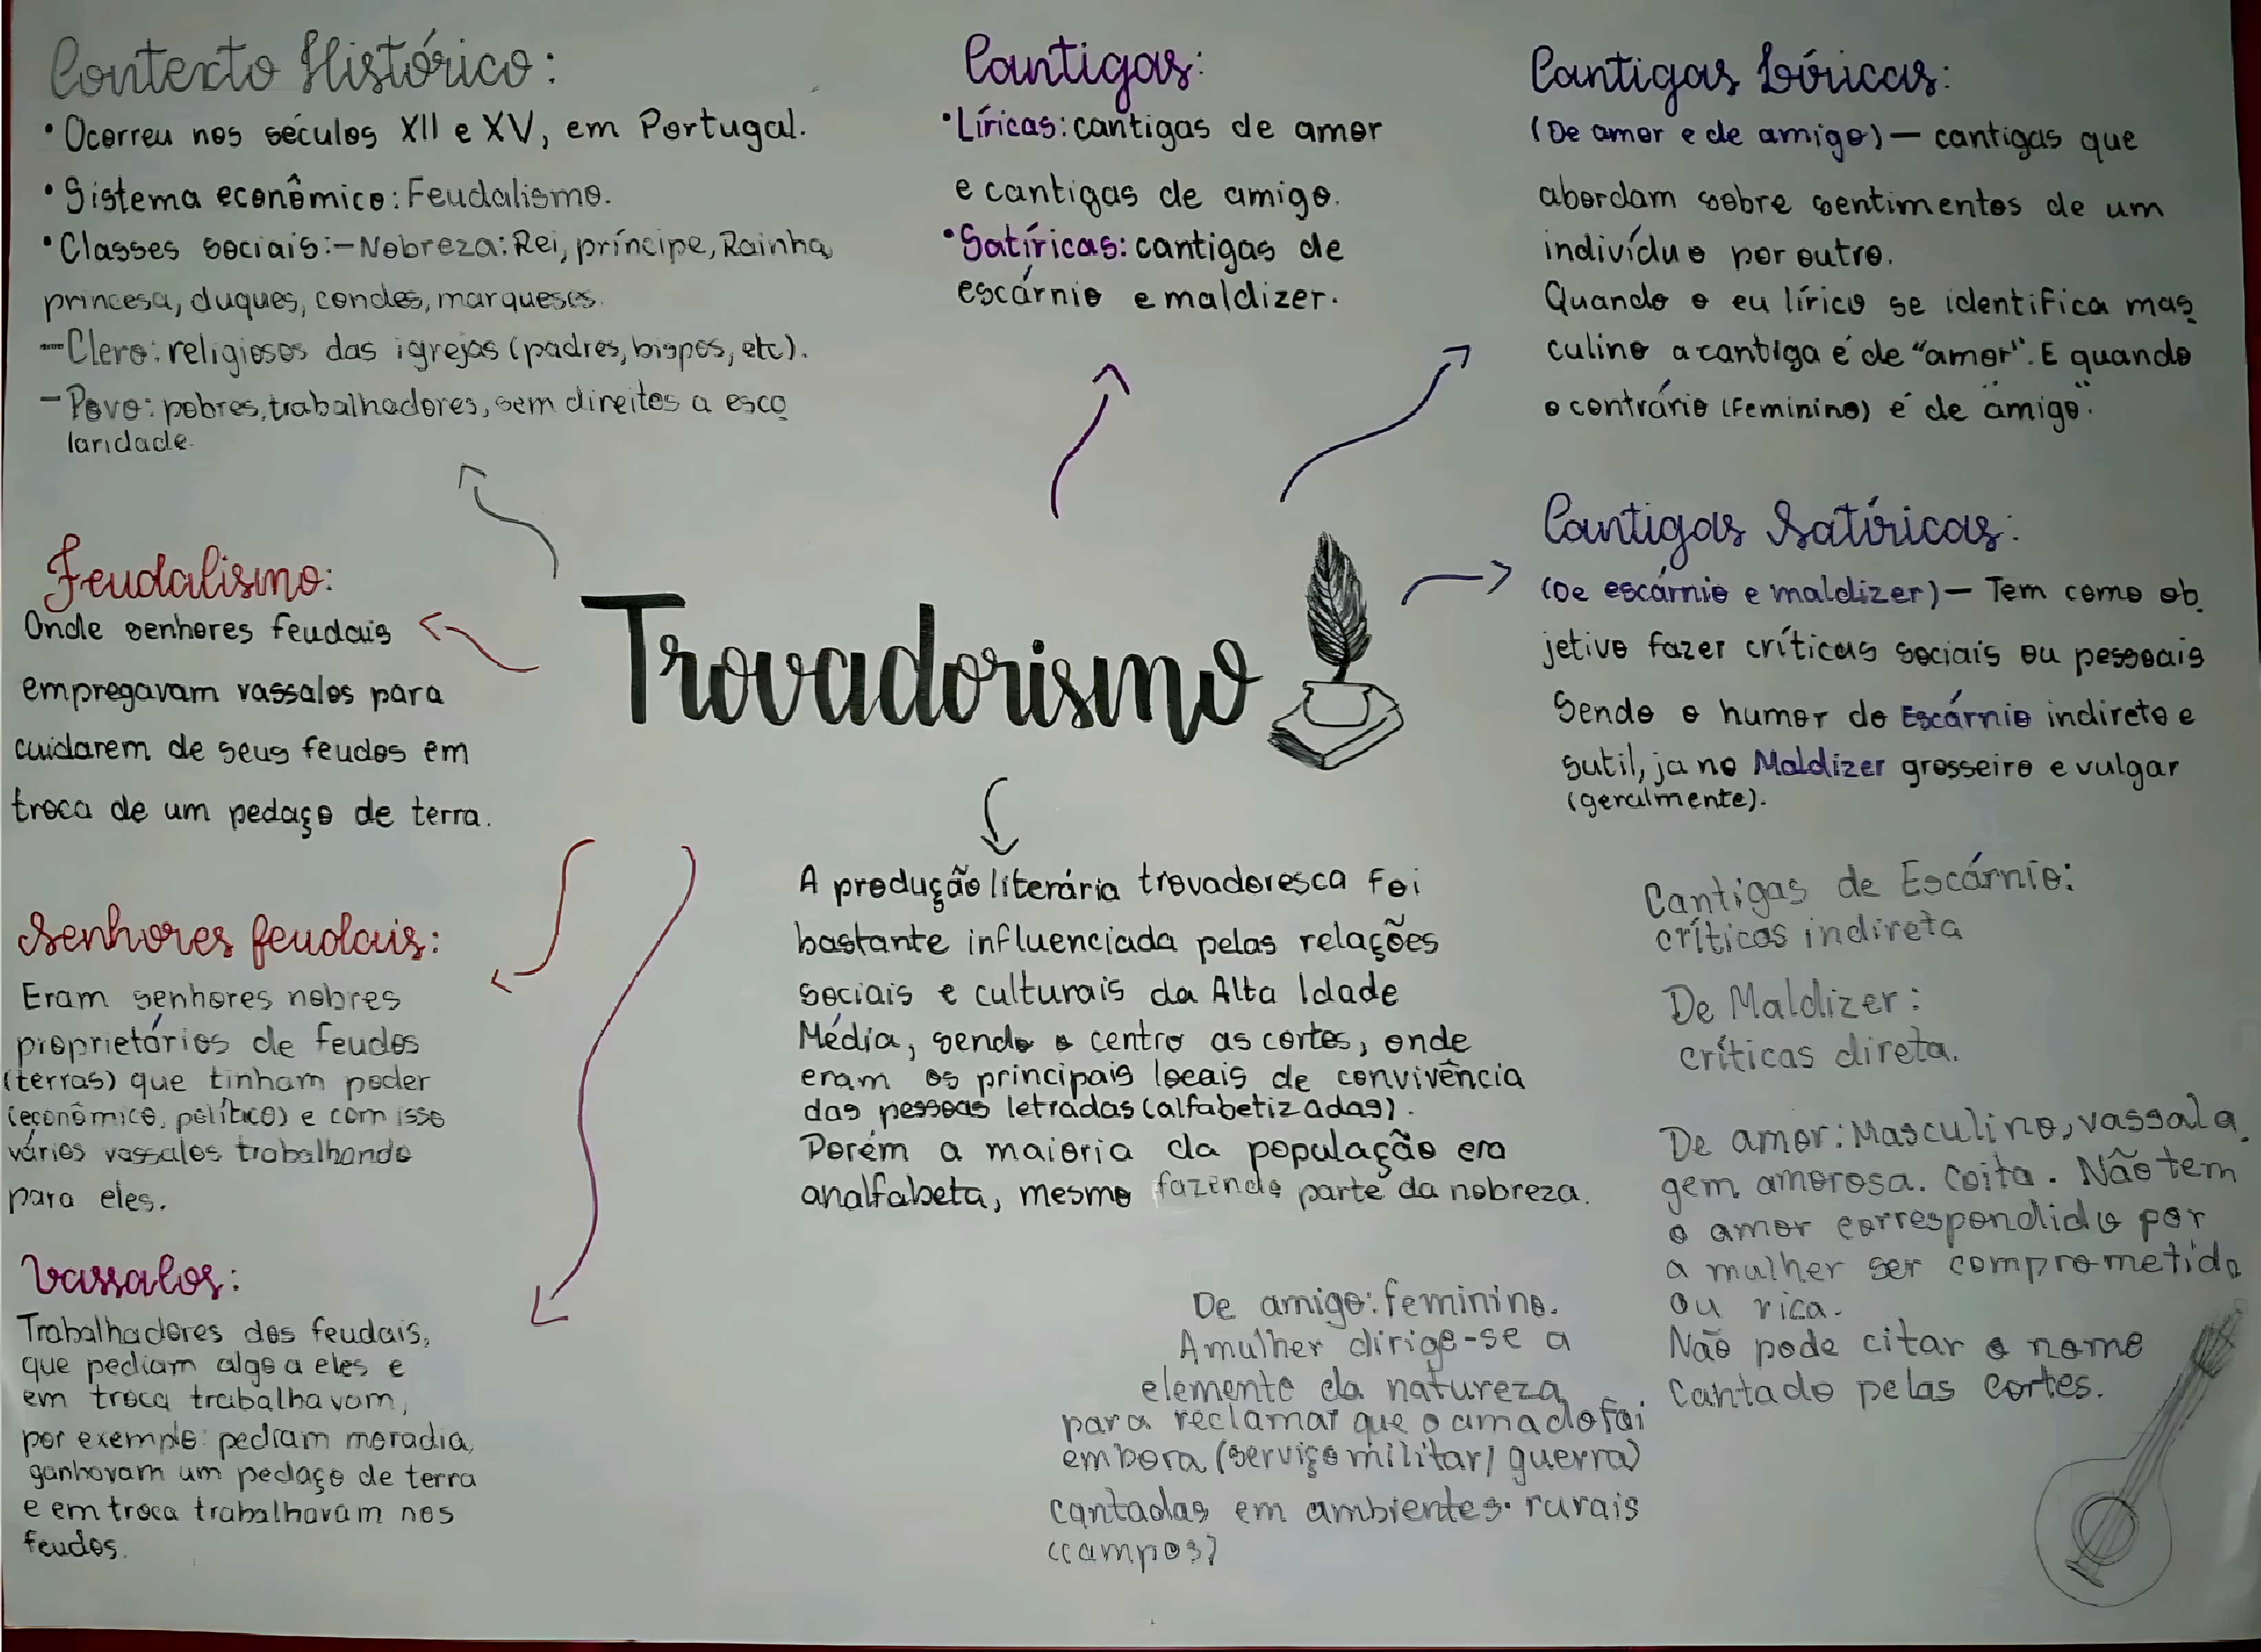 Contexto Histórico:
• Ocorreu nos séculos XII e XV, em Portugal.
• Sistema econômico: Feudalismo.
• Classes sociais: - Nobreza: Rei, príncipe, Rainha,
princesa, duques, condes, marqueses.
- Clero: religiosos das igrejas (padres, bispos, etc).
- Povo: pobres, trabalhadores, sem direitos a esco
laridade.
Cantigas:
• Líricas: cantigas de amor
e cantigas de amigo.
• Satíricas: cantigas de
escárnio e maldizer.
Cantigas Líricas:
(De amor e de amigo) — cantigas que
abordam sobre sentimentos de um
indivíduo por outro.
Quando o eu lírico se identifica mas
culino a cantiga é de "amor". E quando
o contrário (feminino) é de "amigo".
Feudalismo:
Onde senhores feudais
empregavam vassalos para
cuidarem de seus feudos em
troca de um pedaço de terra.
Trovadorismo
Cantigas Satíricas:
(De escárnio e maldizer) — Tem como ob
jetivo fazer críticas sociais ou pessoais
Sendo o humor do Escárnio indireto e
sutil, ja no Maldizer grosseiro e vulgar
(geralmente).
Senhores feudais:
Eram senhores nobres
proprietários de feudos
(terras) que tinham poder
(econômico, político) e com isso
vários vassalos trabalhando
para eles.
A produção literária trovadoresca foi
bastante influenciada pelas relações
sociais e culturais da Alta Idade
Média, sendo o centro as cortes, onde
eram os principais locais de convivência
das pessoas letradas (alfabetizadas).
Porém a maioria da população era
analfabeta, mesmo fazendo parte da nobreza.
Cantigas de Escárnio:
críticas indireta
De Maldizer:
críticas direta.
Vassalos:
Trabalhadores dos feudais,
que pediam algo a eles e
em troca trabalhavam,
por exemplo: pediam moradia,
ganhavam um pedaço de terra
e em troca trabalhavam nos
feudos.
De amigo: feminino.
A mulher dirige-se a
elemento da natureza
para reclamar que o amado foi
embora (serviço militar/guerra)
cantadas em ambientes rurais
(campos)
De amor: Masculino, vassala
gem amorosa. Coita. Não tem
o amor correspondido por
a mulher ser comprometida
ou rica.
Não pode citar o nome
Cantado pelas cortes.